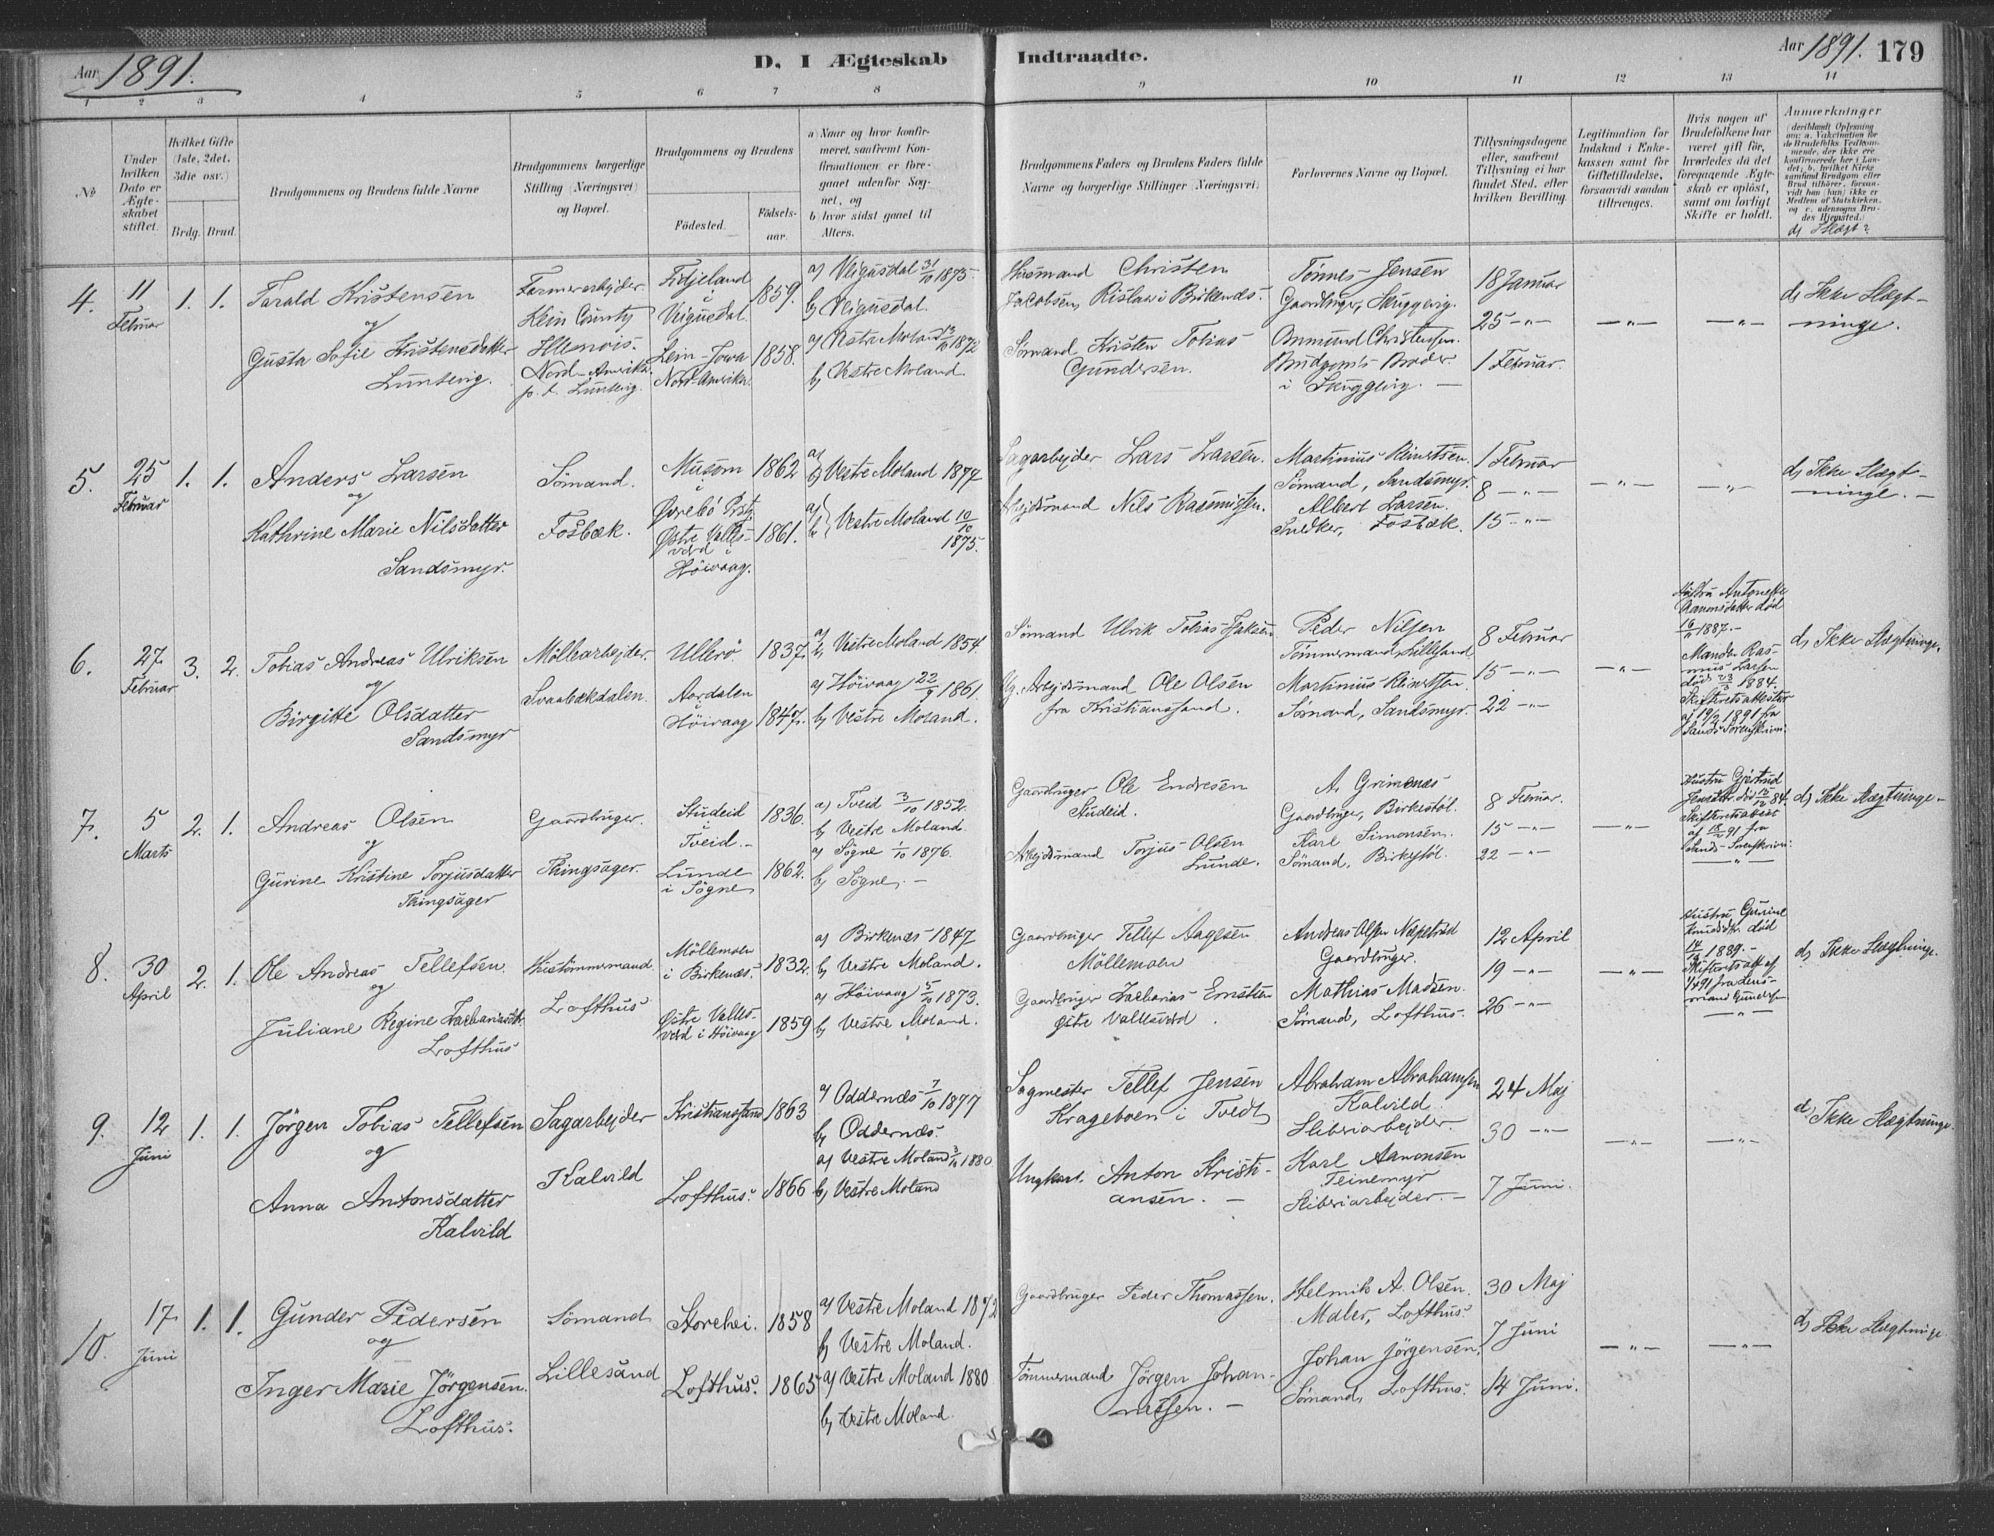 Aar 1891.
D. I Ægteskab Indtraadte.
Aar 1891. 179
1 2 3 4 5 6 7 8 9 10 11 12 13 14
No
Under hvilken Dato er Ægteskabet stiftet.
Hvilket Gifte (1ste, 2det, 3die osv.)
Brdg. Brud.
Brudgommens og Brudens fulde Navne
Brudgommens borgerlige Stilling (Næringsvei) og Bopæl.
Brudgommens og Brudens
Fødested.
Fødselsaar.
a) Naar og hvor konfirmeret, samt om Konfirmationen er foregaaet udenfor Sognet, og
b) hvor sidst gaaet til Alters.
Brudgommens Faders og Brudens Faders fulde Navne og borgerlige Stillinger (Næringsvei)
Forlovernes Navne og Bopæl.
Tillysningsdagene eller, saafremt Tillysning ei har fundet Sted, efter hvilken Bevilling.
Legitimation for Indskud i Enkekassen samt for Giftetilladelse, forsaavidt saadan tiltrænges.
Hvis nogen af Brudefolkene har været gift før, hvorledes da det foregaaende Ægteskab er opløst, samt om lovligt Skifte er holdt.
Anmærkninger
d) Slægt?
4.
11 Februar
1. 1.
Tarald Kristensen
og
Gusta Sofie Kristensdatter
Luntevig.
Farmerarbejder
County
Illenois.
Nord-Amerika.
p. t. Luntevig.
Fitjeland
i
Vegusdal
1859.
Iowa
Nord-Amerika.
1858.
a) Vegusdal 31/10 1875.
b) Vegusdal.
a) Vestre Moland 13/10 1872
b) Vestre Moland.
Husmand Christen
Jacobsen, i Birkenæs.
Sømand Kristen Tobias
Gundersen.
Tønnes Jensen
Gaardbruger, Skuggevig.
Christensen.
Brudgom's Broder
i Skuggevig. —
18 Januar
25 — " —
1 Februar.
— " —
— " —
d) Ikke Slægt-
ninge.
5.
25 Februar
1. 1.
Anders Larsen
og
Kathrine Marie Nilsdatter
Sandsmyr.
Sømand.
Fosbæk.
Musom
i
Øvrebø Pstg.
1862
Østre Valles-
verd i
Høivaag.
1861.
a)
b) Vestre Moland 1877
a)
b) Vestre Moland 10/10
1875.
Sagarbejder Lars Larsen.
Arbejdsmand Nils Rasmussen.
Martinius Reinertsen.
Sømand, Sandsmyr.
Albert Larsen.
Snedker, Fosbæk.
1 Februar
8 — " —
15 — " —
— " —
— " —
d) Ikke Slægt-
ninge. —
6.
27 Februar
3. 2.
Tobias Andreas Ulriksen
og
Birgitte Olsdatter
Sandsmyr
Møllearbejder.
Svaabækdalen.
Ullerø
1837.
Aardalen
i
Høivaag
1847.
a)
b) Vestre Moland 1854.
a) Høivaag 22/9 1861.
b) Vestre Moland.
Sømand Ulrik Tobias
Arbejdsmand Ole Olsen
fra Kristianssand.
Peder Nilsen
Tømmermand, Lillesand
Martinius Reinertsen.
Sømand, Sandsmyr.
8 Februar
15 — " —
22 — " —
— " —
Hustru Antonette
Aanonsdatter død
1887. —
Manden Ras-
mus Larsen
død 23/3 1884.
Skifteretsattester
af 19/2 1891 fra
Sands Sorenskriver.
d) Ikke Slægtninge.
7.
5 Marts
2. 1.
Andreas Olsen
og
Gurine Kristine Torjusdatter
Thingsager
Gaardbruger.
Thingsager.
Studeid
i
Tveid. —
1836.
Lunde
i Søgne
1862.
a) Tveid 3/10 1852.
b) Vestre Moland.
a) Søgne 1/10 1876.
b) Søgne. —
Gaardbruger Ole Endresen
Studeid.
Arbejdsmand Torjus Olsen
Lunde.
A. Grimenæs
Gaardbruger, Birkestøl.
Karl Simonsen.
Sømand, Birkestøl.
8 Februar.
15 — " —
22 — " —
— " —
Hustru Gjertrud
Skifteretsattest
af 18/2 91 fra
Sands Sorenskriver.
— " —
d) Ikke Slægtninge —
8.
30 April
2. 1.
Ole Andreas Tellefsen
og
Juliane Regine Zachariasdtr.
Lofthus
Hustømmermand
Lofthus
Møllemoen
i Birkenæs.
1832.
Østre Valles-
verd i Høivaag
1859
a) Birkenæs 1847
b) Vestre Moland.
a) Høivaag 5/10 1873.
b) Vestre Moland.
Gaardbruger Tellef Aagesen
Møllemoen
Gaardbruger Zacharias Erntsen
Østre Vallesverd.
Andreas Olsen
Gaardbruger.
Mathias Madsen.
Sømand, Lofthus.
12 April
19 — " —
26 — " —
— " —
Hustru Gurine
Knudsdtr. død
1889. —
Skifteretsatt. af
91 fra Lens-
mand Gundersen
— " —
d) Ikke Slægtninge.
9.
12 Juni
1. 1.
Jørgen Tobias Tellefsen
og
Anna Antonsdatter
Kalvild
Sagarbejder
Kalvild
Kristianssand
1863
Lofthus.
1866
a) Oddernæs 7/10 1877
b) Oddernæs.
a) Vestre Moland 3/10 1880.
b) Vestre Moland
Sagmester Tellef Jensen
Krageboen i Tvedt
Ungkarl. Anton Kristi-
ansen. —
Abraham Abrahamsen
Kalvild.
Sliberiarbejder.
Karl Aanonsen
Teinemyr
Sliberiarbejder —
24 Maj
30 — " —
7 Juni.
— " —
— " —
d) Ikke Slægtninge
10.
17 Juni
1. 1.
Gunder Pedersen
og
Inger Marie Jørgensen.
Lofthus.
Sømand
Lillesand
Storehei.
1858
Lofthus.
1865
a) Vestre Moland 1872
b) Vestre Moland.
a) Vestre Moland 1880
b) Vestre Moland.
Gaardbruger Peder Thomassen.
Tømmermand Jørgen Johan-
nesen. —
Helmik A. Olsen.
Maler, Lofthus.
Johan Jørgensen.
Sømand, Lofthus.
30 Maj
7 Juni
14 Juni.
— " —
— " —
d) Ikke Slægtninge